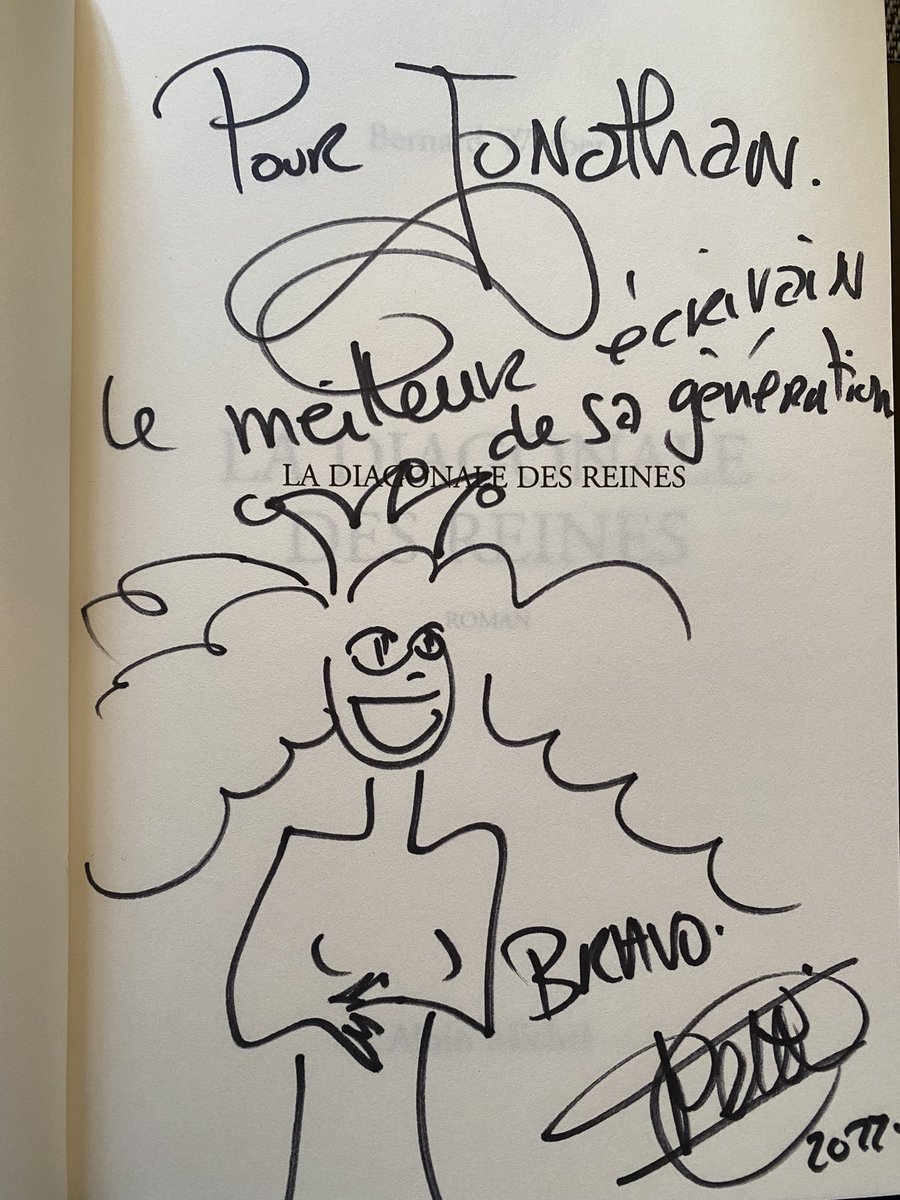 Pour Jonathan.
le meilleur écrivain
de sa génération
LA DIAGONALE DES REINES
LA DIAGONALE
DES REINES
ROMAN
BRAVO.
Albin Michel
2022.